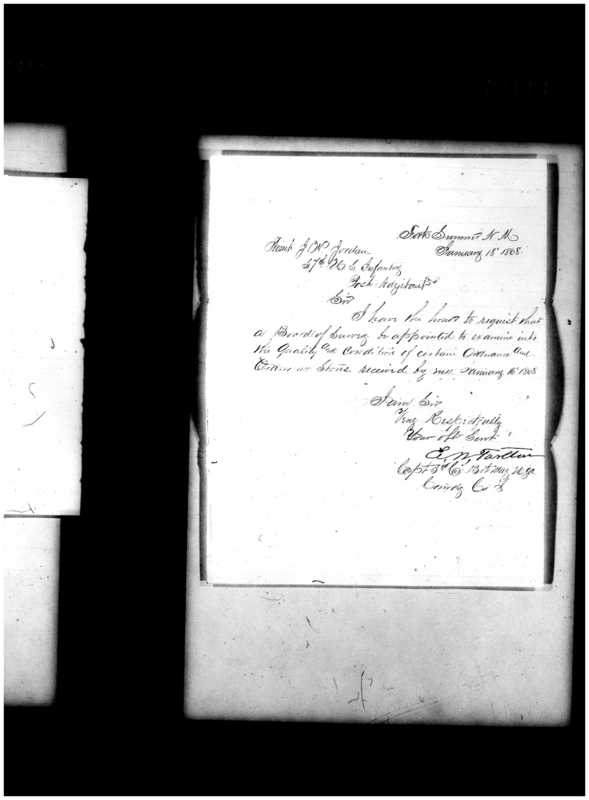 Fort Sumner N. M.
January 18" 1868
J. W. Jordan
37th U S Infantry
Post Adjutant
Sir
I have the honor to request that
a Board of Survey be appointed to examine into
the Quality and Condition of certain Ordnance and
Ordnance Stores received by me January 16" 1868
I am Sir
Very Respectfully
Your obt Servt
Capt 3d Cav
Comdg Co